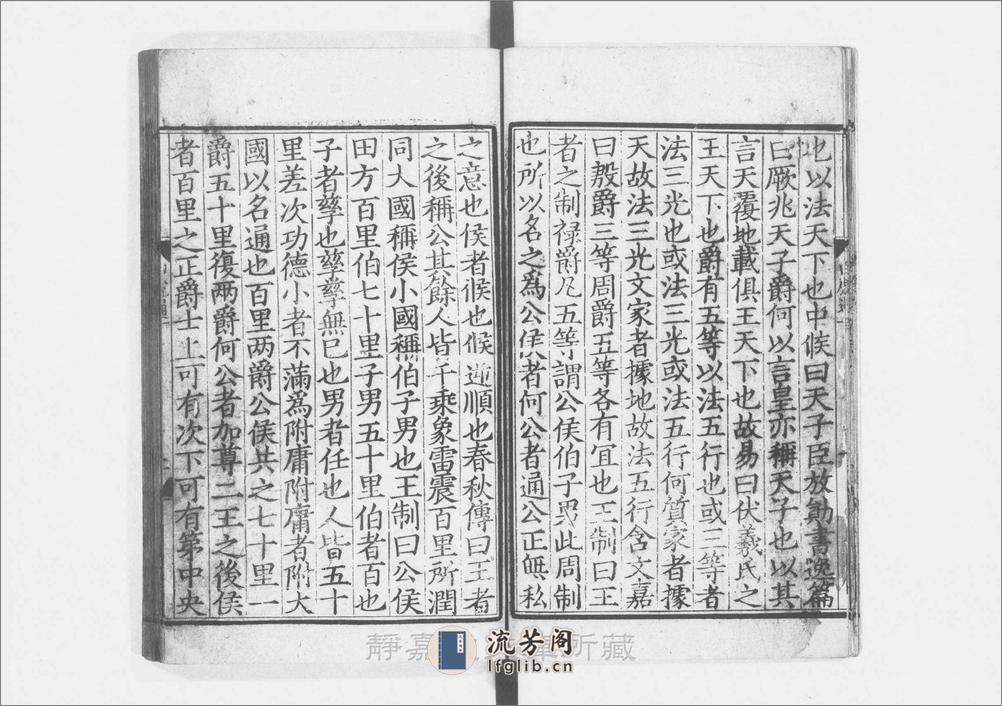 地以法天下也中候曰天子臣放勛書逸篇
曰厥兆天子爵何以言皇亦稱天子也以其
言天覆地載俱王天下也故易曰伏羲氏之
王天下也爵有五等以法五行也或三等者
法三光也或法三光或法五行何質家者據
天故法三光文家者據地故法五行含文嘉
曰殷爵三等周爵五等各有宜也王制曰王
者之制祿爵凡五等謂公侯伯子男此周制
也所以名之爲公侯者何公者通公正無私
之意也侯者候也候逆順也春秋傳曰王者
之後稱公其餘人皆千乘象雷震百里所潤
同大國稱侯小國稱伯子男也王制曰公侯
田方百里伯七十里子男五十里伯者百也
子者孳也孳孳無已也男者任也人皆五十
里差次功德小者不滿爲附庸附庸者附大
國以名通也百里兩爵公侯共之七十里一
爵五十里復兩爵何公者加尊二王之後侯
者百里之正爵士上可有次下可有第中央
靜嘉 所藏
流芳阁
lfglib.cn